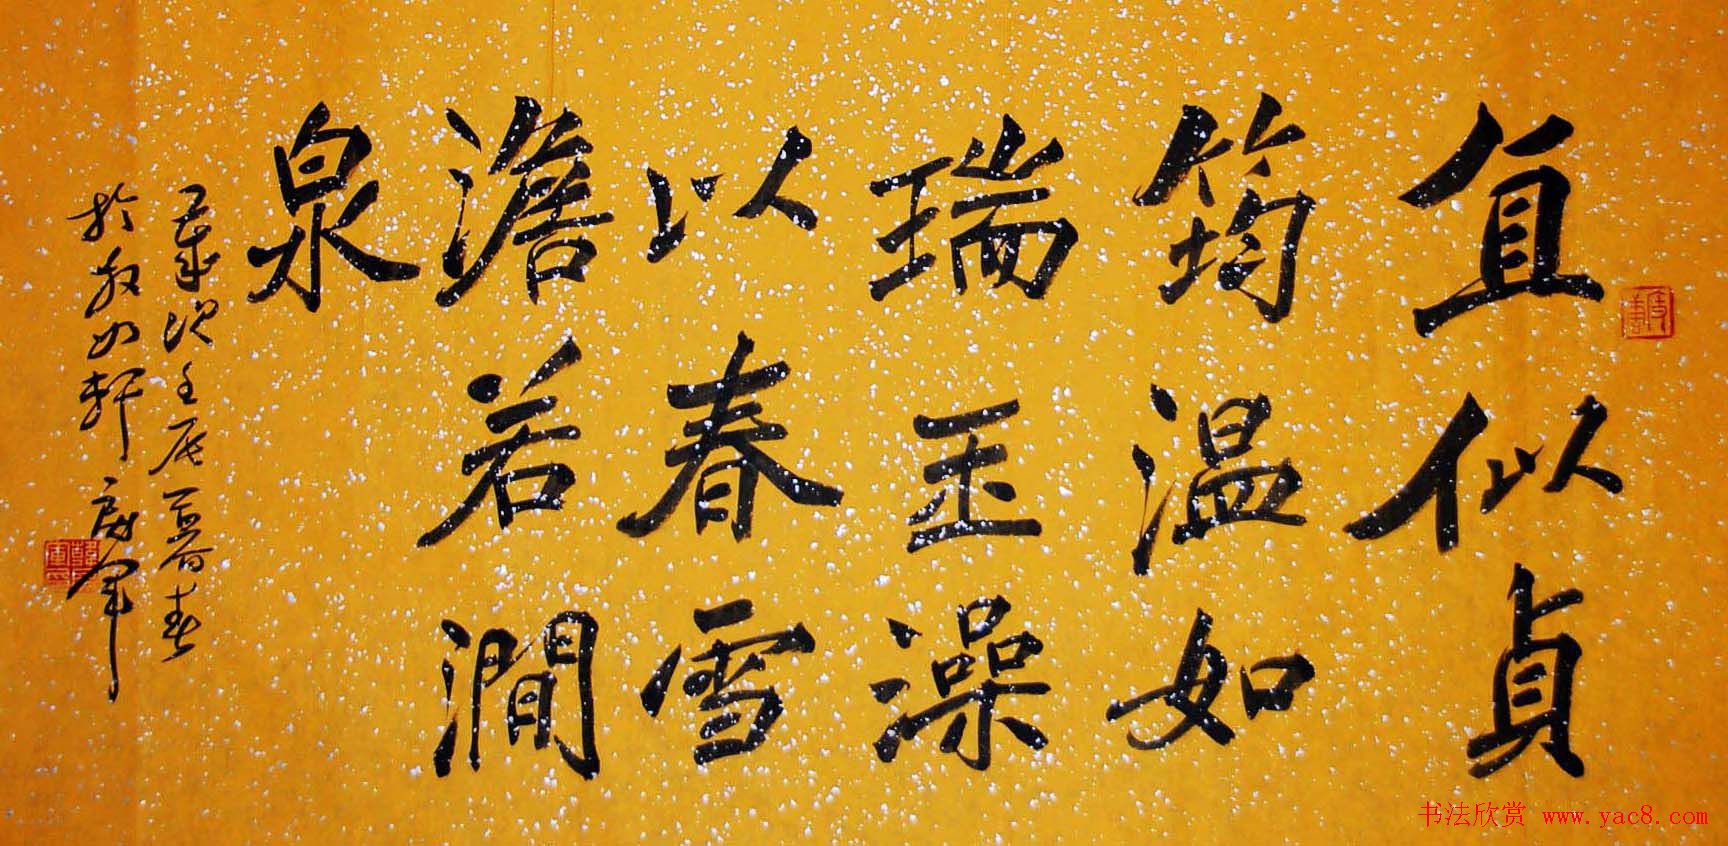 直似貞
筠温如
瑞玉澡
以春雪
澹若澗
泉
歲次壬辰暮春
於軒
书法欣赏 www.yac8.com